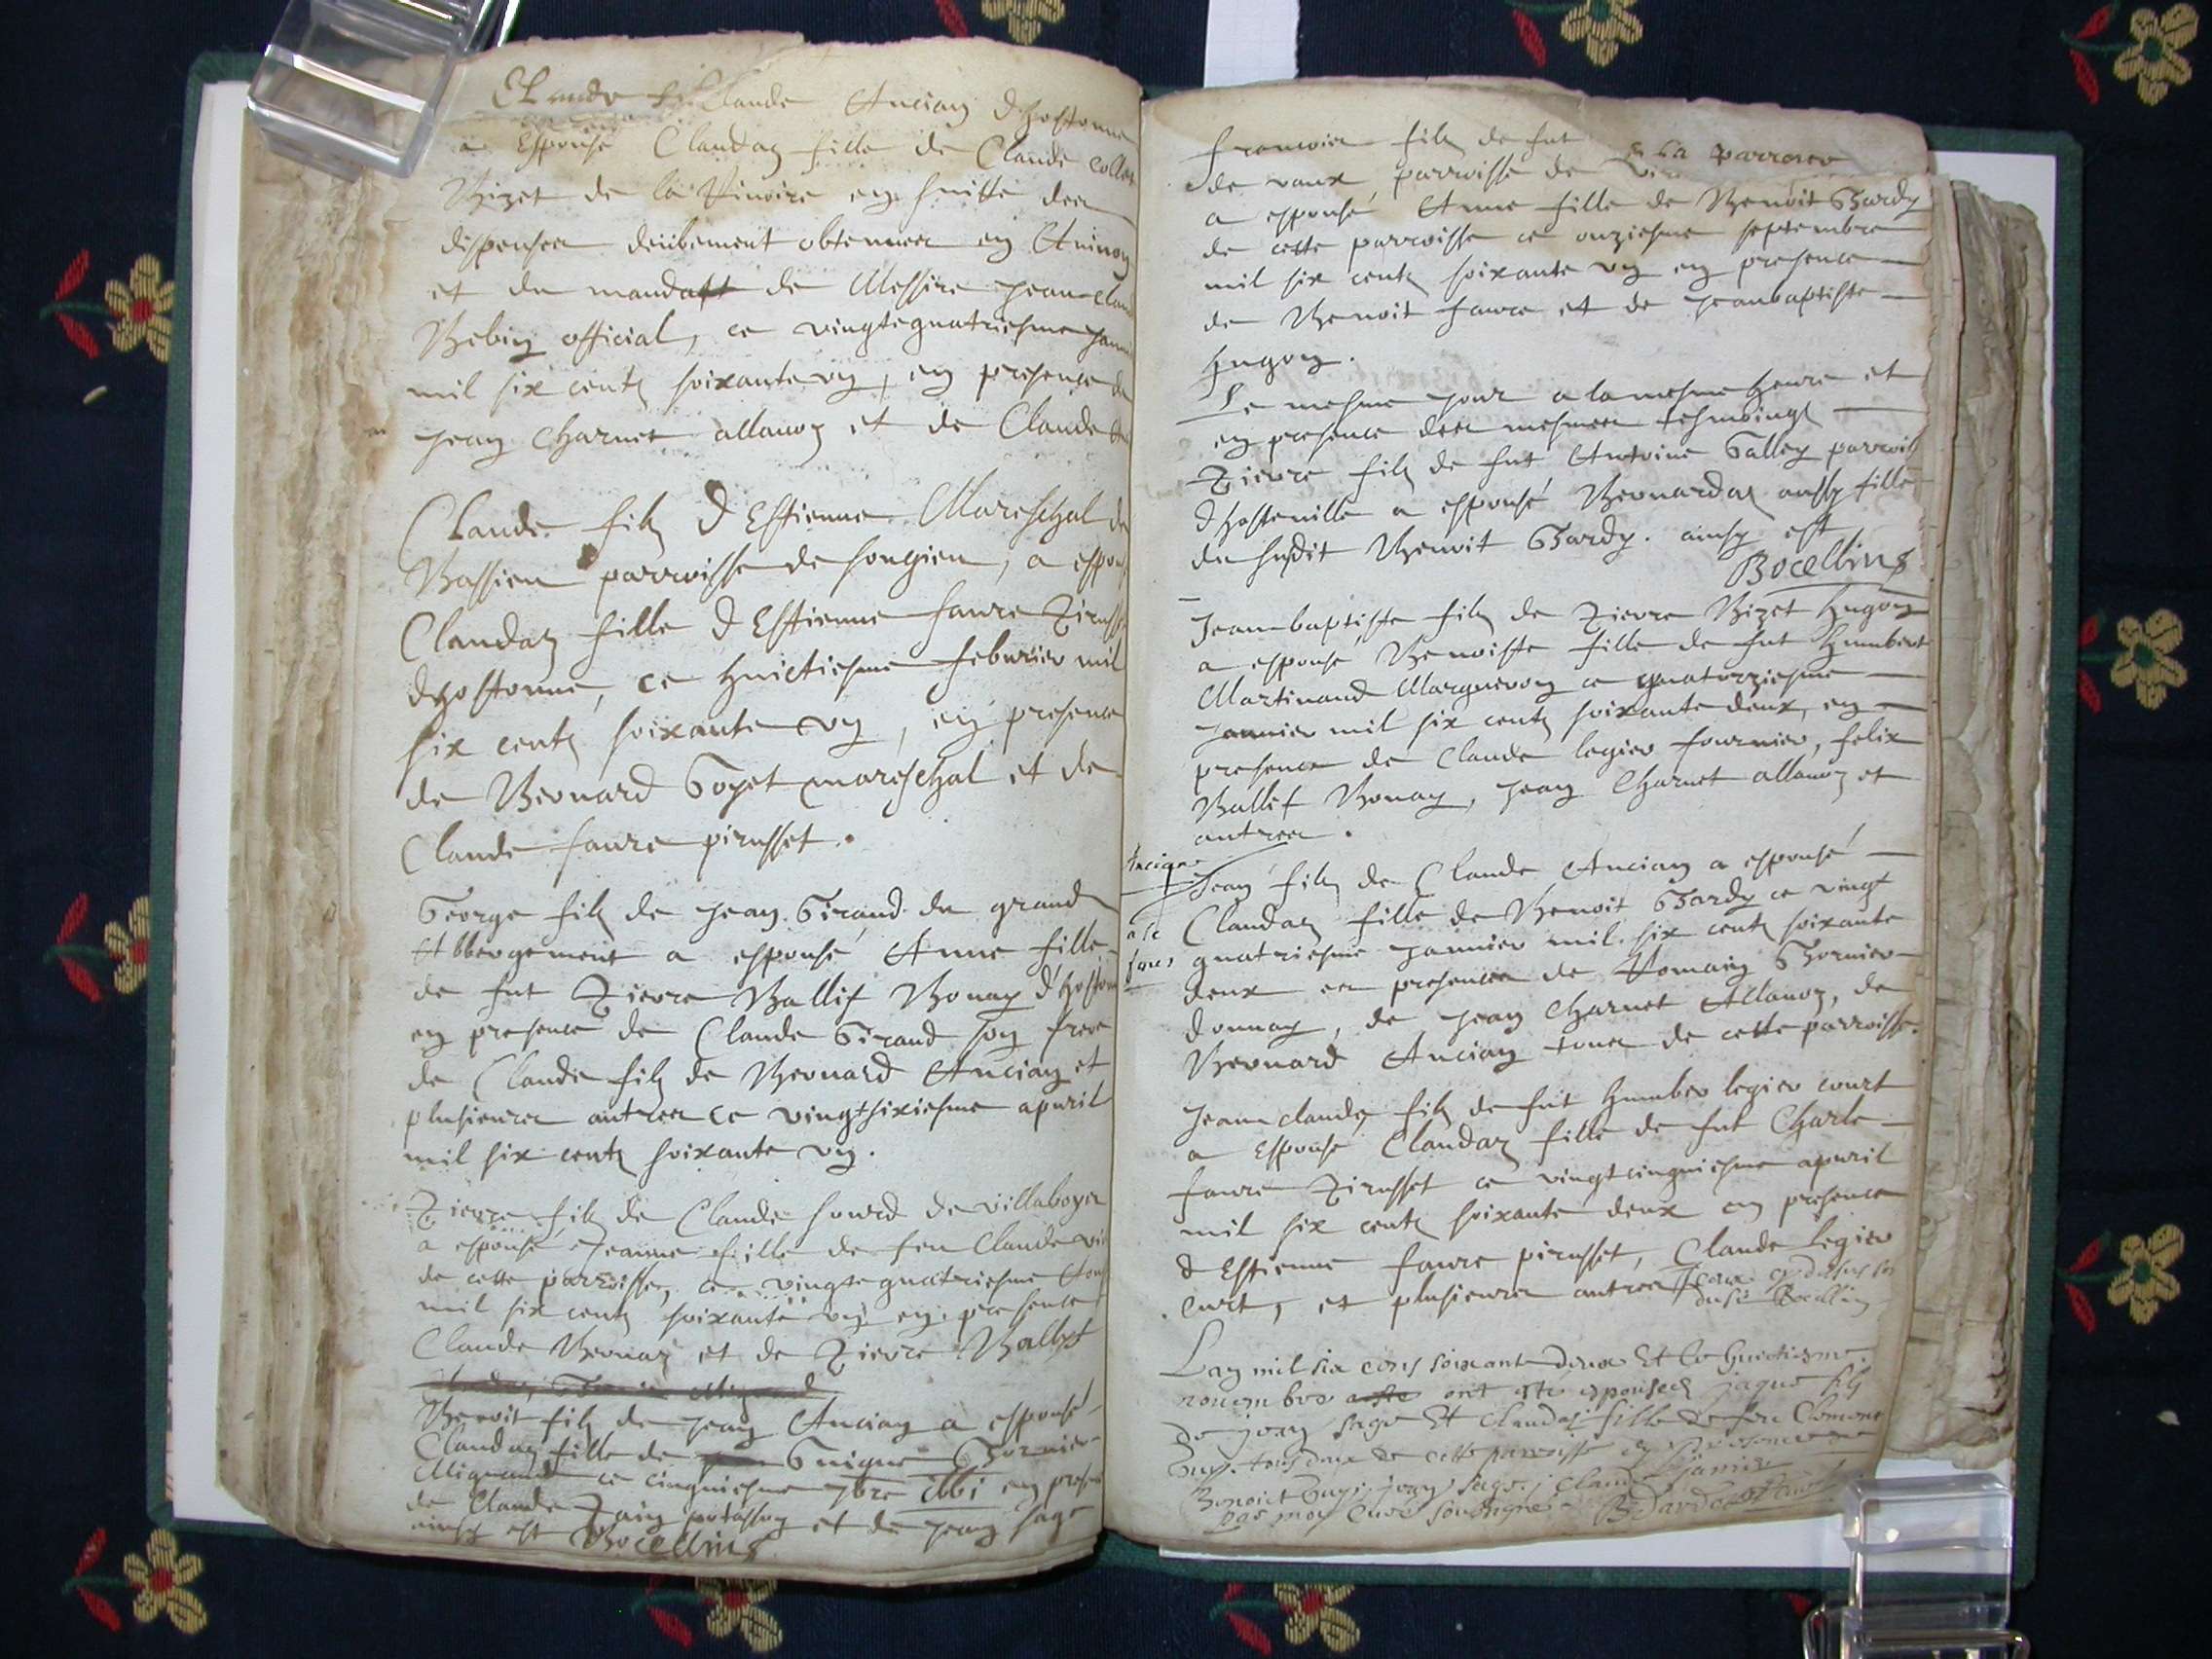 Claude filz Claude Ancian dhostonne
a Espousé Claudaz fille de Claude Collet
Bizet de la Rivoire en suitte des
dispenses deübement obtenues en Avinon
et du mandatt de Messire Jean Claud
Bebin official, ce vingtequatriesme Janv
mil six centz soixante un, en presence de
Jean Charvet allavoz et de Claude
Claude filz d Estienne Mareschal de
Bassieu parroisse de songieu, a espous
Claudaz fille d Estienne favre Pirusset
dhostonne, ce huictiesme febvrier mil
six centz soixante un, en presence
de Bernard Goyet mareschal et de
Claude favre pirusset.
George filz de Jean Giraud du grand
Abbergement a espousé Anne fille
de fut Pierre Ballif Bonay d'hoston
en presence de Claude Giraud son frere
de Claude filz de Bernard Ancian et
plusieures autres ce vingtsixiesme apvril
mil six centz soixante un.
Pierre filz de Claude sourd de villaboyes
a espousé Jeanne fille de feu Claude
de cette parroisse, ce vingtequatriesme
mil six centz soixante un en presence
Claude Bernaz et de Pierre Ballyf
Benoit filz de Jean Ancian a espousé
Claudaz fille de Guigue Bornier
Mignand ce cinquiesme en prese
de Claude et de Jean Sage
ainsy est Bocellins
francois filz de fut de la parroise
de vaux, parroisse de
a espousé Anne fille de Benoit Gardy
de cette parroisse ce onziesme septembre
mil six centz soixante un en presence
de Benoit favre et de Jeanbaptiste
hugon.
Le mesme jour a la mesme heure et
en presence des mesmes tesmoingz
Pierre filz de fut Antoine Galley parrois
dhosteville a espousé Bernardaz aussy fille
du susdit Benoit Gardy. ainsy est
Bocellins
Jeanbaptiste filz de Pierre Bizet hugon
a espousé Benoiste fille de fut humbert
Martinand Marguevon ce quatorziesme
Janvier mil six centz soixante deux, en
presence de Claude legier fournier, felix
Ballif Bonay, Jean Charvet allavoz et
autres.
Ancian
Jean filz de Claude Ancian a espousé
Claudaz fille de Benoit Gardy ce vingt
quatriesme Janvier mil six centz soixante
deux en presence de Romain Bornier
donnay, de Jean Charvet Allavoz, de
Bernard Ancian tous de cette parroisse.
Jean claude filz de fut humber legier court
a Espousé Claudaz fille de fut Charle
favre Pirusset ce vingtcinquiesme apvril
mil six centz soixante deux en presence
d Estienne favre pirusset, Claude legier
curt, et plusieures autres
L an mil six cens soixante deux Et le huictiesme
novembre ont esté espousés Jaque filz
de jean sage Et Claudaz fille de feu Clement
tous deux de cette parroisse en presence de
Benoict jean sage, Claude
par moy Curé soubsigné